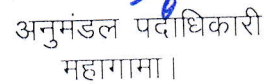 अनुमंडल पदाधिकारी
महागामा।